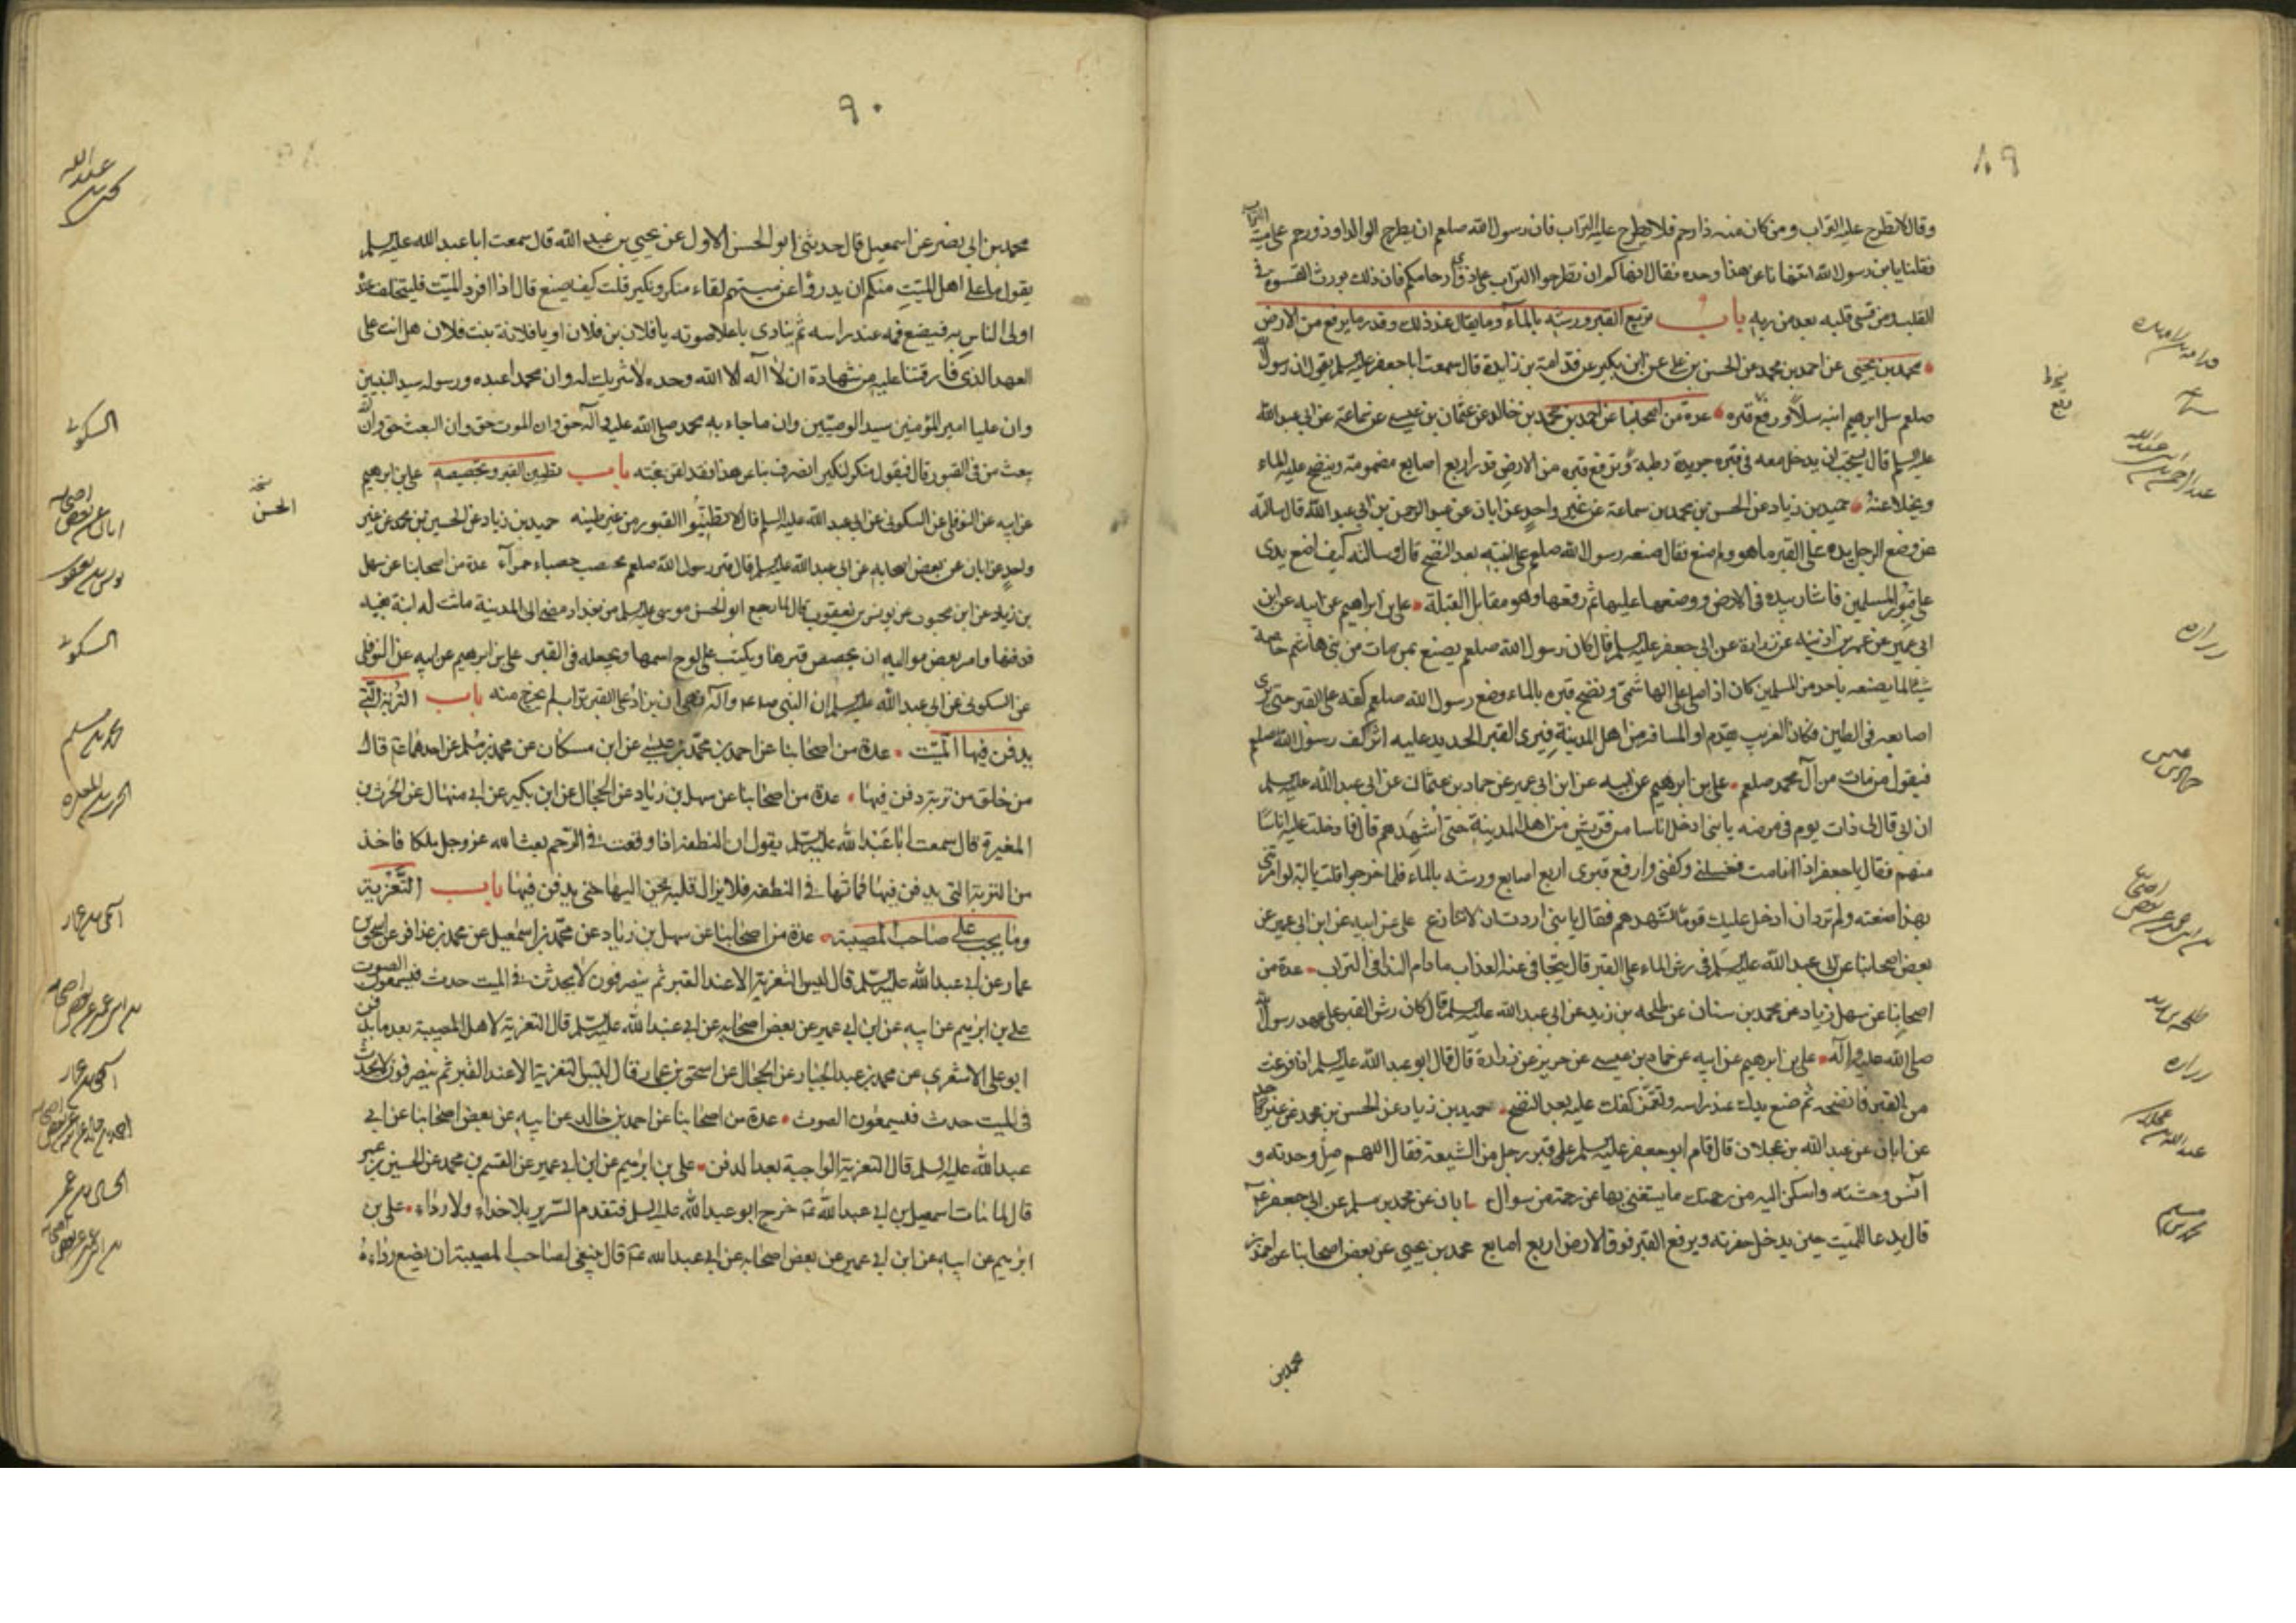 ٨٩
وقال لا تطرح عليه التراب ومن كان منه ذا رحم فلا يطرح عليه التراب فان رسول الله صلعم ان يطرح الوالد او ذو رحم على ميته التراب
فقلنا يابن رسول الله اتنهانا عن هذا وحده فقال انهاكم ان تطرحوا التراب على ذوى ارحامكم فان ذلك يورث القسوة في
القلب ومن قسى قلبه بعد من ربه باب تربيع القبر ورشه بالماء وما يقال عند ذلك وقدر ما يرفع من الارض
محمد بن يحيى عن احمد بن محمد عن الحسن بن على عن ابن بكير عن قدامة بن زايدة قال سمعت ابا جعفر عليه السلم يقول ان رسول الله
صلعم سل ابرهيم ابنه سلا ورفع قبره عدة من اصحابنا عن احمد بن محمد بن خالد عن عثمان بن عيسى عن سماعة عن ابى عبد الله
عليه السلم قال يستحب ان يدخل معه فى قبره جريدة رطبة ويرفع قبره من الارض قدر اربع اصابع مضمومة وينضح عليه الماء
ويخلا عنه حميد بن زياد عن الحسن بن محمد بن سماعة عن غير واحد عن ابان عن عبد الرحمن بن ابى عبد الله قال سالته
عن وضع الرجل يده على القبر ما هو ولم صنع فقال صنعه رسول الله صلعم على ابنته بعد النضح قال وسالته كيف اضع يدى
على قبور المسلمين فاشار بيده فى الارض ووضعها عليها ثم رفعها وهو مقابل القبلة على بن ابراهيم عن ابيه عن ابن
ابى عمير عن عمر بن اذينه عن زرارة عن ابى جعفر عليه السلم قال كان رسول الله صلعم يصنع بمن مات من بنى هاشم خاصة
شيئا لا يصنعه باحد من المسلمين كان اذا صلى على الهاشمى ونضح قبره بالماء وضع رسول الله صلعم كفه على القبر حتى ترى
اصابعه فى الطين فكان الغريب يقدم او المسافر من اهل المدينة فيرى القبر الجديد عليه اثر كف رسول الله صلعم
فيقول من مات من آل محمد صلعم على بن ابرهيم عن ابيه عن ابن ابى عمير عن حماد بن عثمان عن ابى عبد الله عليه السلم
ان ابى قال لى ذات يوم فى مرضه يا بنى ادخل اناسا من قريش من اهل المدينة حتى اشهدهم قال فادخلت عليه اناسا
منهم فقال يا جعفر اذا انا مت فغسلنى وكفنى وارفع قبرى اربع اصابع ورشه بالماء فلما خرجوا قلت يا ابة لو امرتنى
بهذا صنعته ولم ترد ان ادخل عليك قوما تشهدهم فقال يا بنى اردت ان لا تنازع على عن ابيه عن ابن ابى عمير عن
بعض اصحابنا عن ابى عبد الله عليه السلم فى رش الماء على القبر قال يتجافى عنه العذاب ما دام الندا فى التراب عدة من
اصحابنا عن سهل بن زياد عن محمد بن سنان عن طلحه بن زيد عن ابى عبد الله عليه السلم قال كان رش القبر على عهد رسول الله
صلى الله عليه وآله على بن ابرهيم عن ابيه عن حماد بن عيسى عن حريز عن زرارة قال قال ابو عبد الله عليه السلم اذا فرغت
من القبر فانضحه ثم ضع يدك عند راسه وتغمز كفك عليه بعد النضح حميد بن زياد عن الحسن بن محمد عن غير واحد
عن ابان عن عبد الله بن عجلان قال قام ابو جعفر عليه السلم على قبر رجل من الشيعة فقال اللهم صل وحدته و
آنس وحشته واسكن اليه من رحمتك ما يستغنى بها عن رحمة من سواك ابان عن محمد بن مسلم عن ابى جعفر ع
قال يدعا للميت حين يدخل حفرته ويرفع القبر فوق الارض اربع اصابع محمد بن يحيى عن بعض اصحابنا عن احمد بن
محمد بن
زراره
طلحه بن زيد
زراره
عبد الله بن عجلان
محمد بن مسلم
٩٠
محمد بن ابى نصر عن اسمعيل قال حدثنى ابو الحسن الاول عن يحيى بن عبد الله قال سمعت ابا عبد الله عليه السلم
يقول ما على اهل الميت منكم ان يدرؤا عن ميتهم لقاء منكر ونكير قلت كيف يصنع قال اذا افرد الميت فليتخلف عنده
اولى الناس به فيضع فمه عند راسه ثم ينادى باعلا صوته يا فلان بن فلان او يا فلانة بنت فلان هل انت على
العهد الذى فارقتنا عليه من شهادة ان لا آله الا الله وحده لا شريك له وان محمدا عبده ورسوله سيد النبيين
وان عليا امير المؤمنين سيد الوصيين وان ما جاء به محمد صلى الله عليه وآله حق وان الموت حق وان البعث حق وان الله
يبعث من فى القبور قال فيقول منكر لنكير انصرف بنا عن هذا فقد لقن حجته باب تطيين القبر وتجصيصه على بن ابرهيم
عن ابيه عن النوفلى عن السكونى عن ابى عبد الله عليه السلم قال لا تطينوا القبور من غير طينه حميد بن زياد عن الحسين بن محمد عن غير
واحد عن ابان عن بعض اصحابه عن ابى عبد الله عليه السلم قال قبر رسول الله صلعم محصب حصباء حمرآء عدة من اصحابنا عن سهل
بن زياد عن ابن محبوب عن يونس بن يعقوب قال لما رجع ابو الحسن موسى عليه السلم من بغداد ومضى الى المدينة ماتت له ابنة بفيد
فدفنها وامر بعض مواليه ان يجصص قبرها ويكتب على لوح اسمها ويجعله فى القبر على بن ابرهيم عن ابيه عن النوفلى
عن السكونى عن ابى عبد الله عليه السلم ان النبى صلى الله عليه وآله نهى ان يزاد على القبر تراب لم يخرج منه باب التربة التى
يدفن فيها الميت عدة من اصحابنا عن احمد بن محمد بن عيسى عن ابن مسكان عن محمد بن مسلم عن احدهما ع قال
من خلق من تربة دفن فيها عدة من اصحابنا عن سهل بن زياد عن الحجال عن ابن بكير عن ابى منهال عن الحرث بن
المغيرة قال سمعت ابا عبد الله عليه السلم يقول ان النطفة اذا وقعت فى الرحم بعث الله عز وجل ملكا فاخذ
من التربة التى يدفن فيها فماثها فى النطفه فلا يزال قلبه يحن اليها حتى يدفن فيها باب التعزية
وما يجب على صاحب المصيبة عدة من اصحابنا عن سهل بن زياد عن محمد بن اسمعيل عن محمد بن عذافر عن اسحق بن
عمار عن ابى عبد الله عليه السلم قال ليس التعزية الا عند القبر ثم ينصرفون لا يحدث فى الميت حدث فيسمعون الصوت
على بن ابرهيم عن ابيه عن ابن ابى عمير عن بعض اصحابه عن ابى عبد الله عليه السلم قال التعزية لاهل المصيبة بعد ما يدفن
ابو على الاشعرى عن محمد بن عبد الجبار عن الحجال عن اسحق بن عمار قال ليس التعزية الا عند القبر ثم ينصرفون لا يحدث
فى الميت حدث فيسمعون الصوت عدة من اصحابنا عن احمد بن خالد عن ابيه عن بعض اصحابنا عن ابى
عبد الله عليه السلم قال التعزية الواجبة بعد الدفن على بن ابرهيم عن ابن ابى عمير عن القسم بن محمد عن الحسين بن عمر
قال لما مات اسمعيل بن ابى عبد الله ع خرج ابو عبد الله عليه السلم فتقدم السرير بلا حذاء ولا رداء على بن
ابرهيم عن ابيه عن ابن ابى عمير عن بعض اصحابه عن ابى عبد الله ع قال ينبغى لصاحب المصيبة ان يضع رداءه
السكونى
نسخة
الحسن
السكونى
محمد بن مسلم
الحرث بن المغيره
اسحق بن عمار
اسحق بن عمار